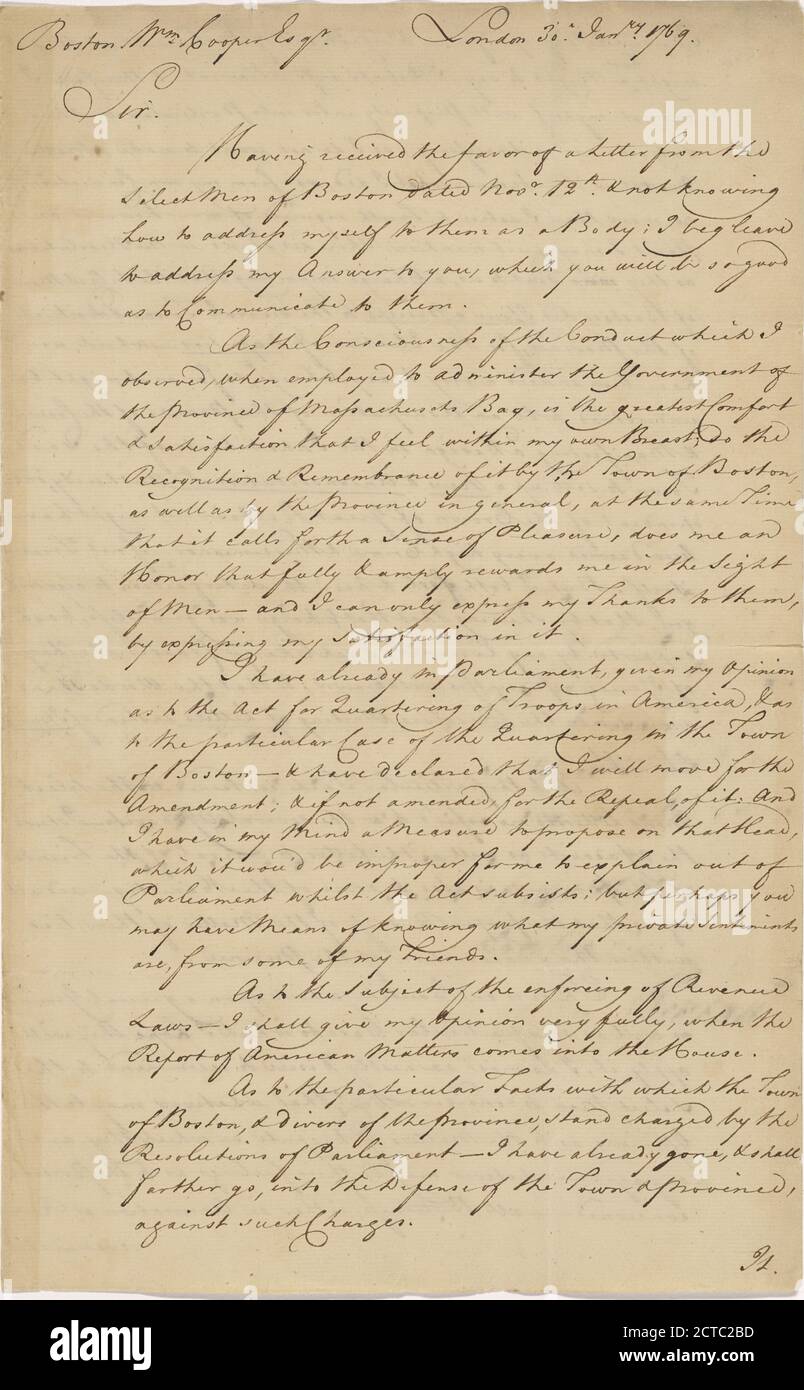 Boston Wm Cooper Esqr. London 30th Janry 1769.
Sir.
Having received the favor of a Letter from the
Select Men of Boston dated Novr. 12th. & not knowing
how to address myself to them as a Body; I beg leave
to address my Answer to you, which you will be so good
as to Communicate to them.
As the Consciousness of the Conduct which I
observed, when employed to administer the Government of
the Province of Massachusets Bay, is the greatest Comfort
& Satisfaction that I feel within my own Breast; so the
Recognition & Remembrance of it by the Town of Boston,
as well as by the Province in general, at the same Time
that it calls forth a Sense of Pleasure, does me an
Honor that fully & amply rewards me in the Sight
of Men — and I can only express my Thanks to them,
by expressing my Satisfaction in it.
I have already in Parliament, given my Opinion
as to the Act for Quartering of Troops in America, & as
to the particular Case of the Quartering in the Town
of Boston — & have declared that I will move for the
Amendment; & if not amended, for the Repeal, of it: And
I have in my Mind a Measure to propose on that Head,
which it wou'd be improper for me to explain out of
Parliament whilst the Act subsists; but perhaps you
may have Means of knowing what my private Sentiments
are, from some of my Friends.
As to the Subject of the enforcing of Revenue
Laws — I shall give my Opinion very fully, when the
Report of American Matters comes into the House.
As to the particular Facts with which the Town
of Boston, & divers of the Province, stand charged by the
Resolutions of Parliament — I have already gone, & shall
farther go, into the Defense of the Town & Province,
against such Charges.
It.
alamy
Image ID: 2CTC2BD
www.alamy.com